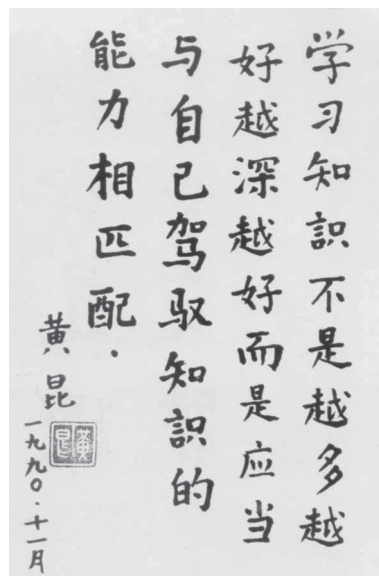 学习知識不是越多越
好越深越好而是应当
与自己驾驭知識的
能力相匹配.
黄昆
一九九〇·十一月
黄昆